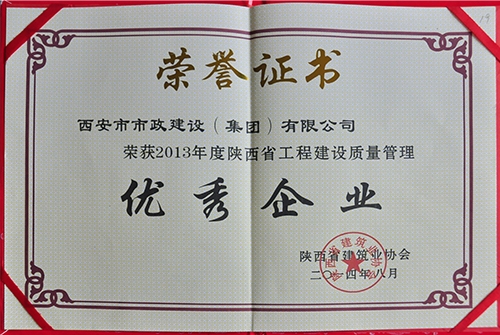 荣誉证书
西安市市政建设（集团）有限公司
荣获2013年度陕西省工程建设质量管理
优秀企业
陕西省建筑业协会
二〇一四年八月
陕西省建筑业协会
19